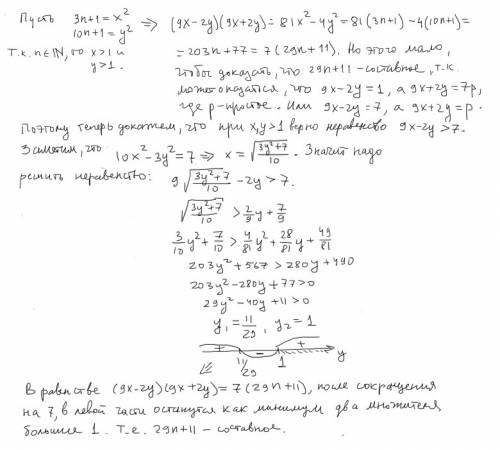 Пусть 3n+1=x² ⇒ (9x-2y)(9x+2y)=81x²-4y²=81(3n+1)-4(10n+1)=
10n+1=y²
Т.к. n∈ℕ, то x>1 и y>1.
=203n+77=7(29n+11). Но этого мало,
чтобы доказать, что 29n+11-составное, т.к.
может оказаться, что 9x-2y=1, а 9x+2y=7p,
где p-простое. Или 9x-2y=7, а 9x+2y=p.
Поэтому теперь докажем, что при x,y>1 верно неравенство 9x-2y>7.
Заметим, что 10x²-3y²=7 ⇒ x=√((3y²+7)/10). Значит надо
решить неравенство: 9√((3y²+7)/10)-2y>7.
√((3y²+7)/10)>2/9y+7/9
3/10y²+7/10>4/81y²+28/81y+49/81
203y²+567>280y+490
203y²-280y+77>0
29y²-40y+11>0
y₁=11/29, y₂=1
+ - + y
11/29 1
В равенстве (9x-2y)(9x+2y)=7(29n+11), после сокращения
на 7, в левой части останутся как минимум два множителя
больше 1. Т.е. 29n+11-составное.